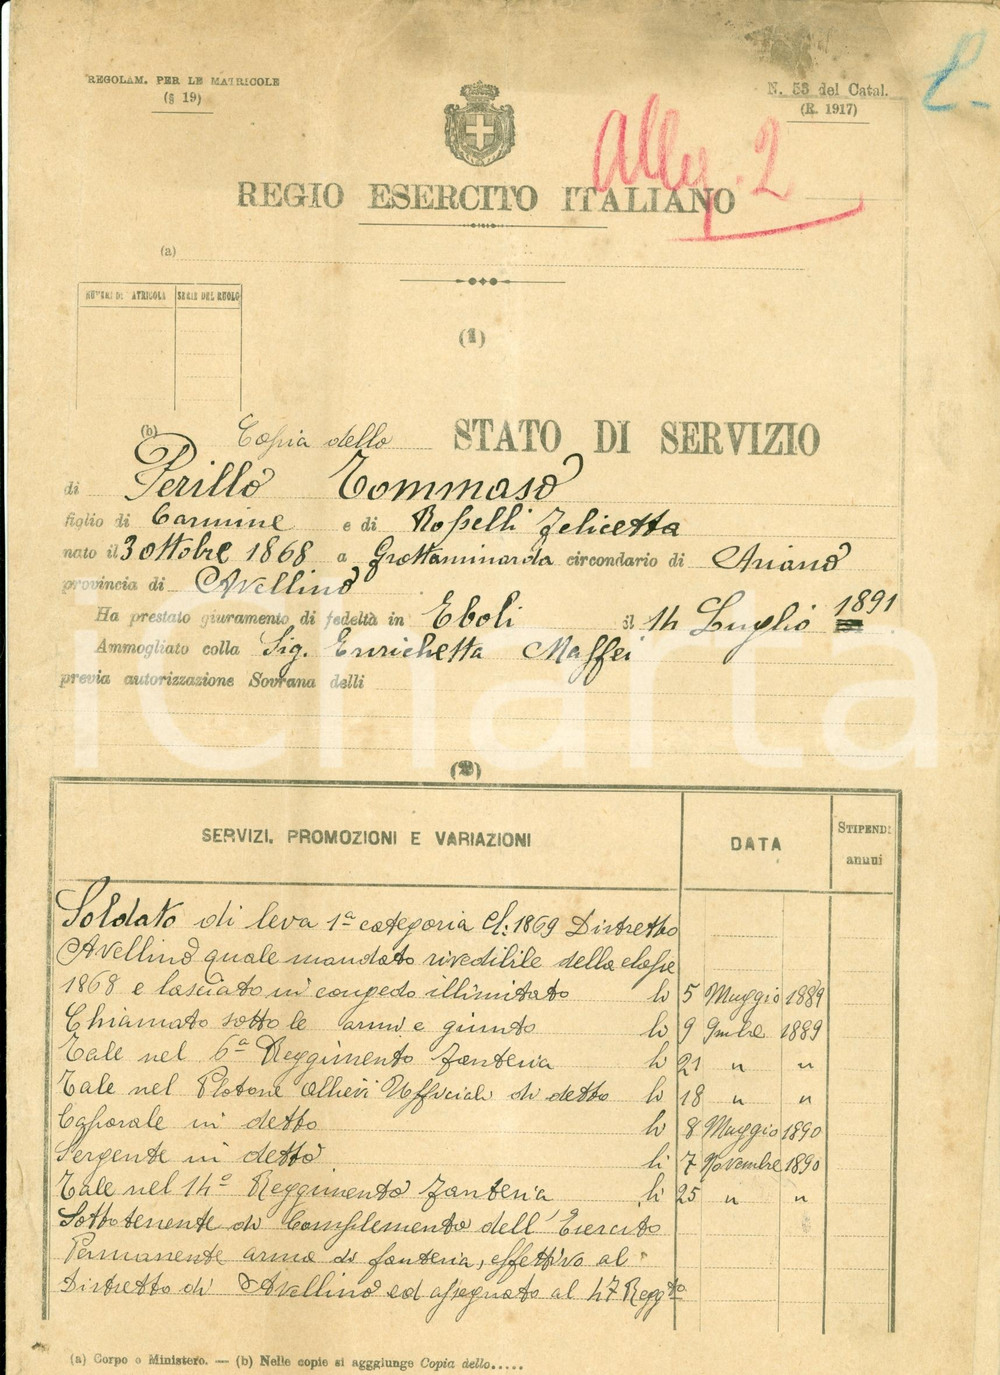 REGOLAM. PER LE MATRICOLE
(§ 19)
N. 53 del Catal.
(R. 1917)
Alleg. 2
REGIO ESERCITO ITALIANO
(a)
NUMERI DI MATRICOLA SERIE DEL RUOLO
(1)
(b) Copia dello STATO DI SERVIZIO
di Perillo Tommaso
figlio di Carmine e di Rosselli Felicetta
nato il 3 ottobre 1868 a Grottaminarda circondario di Ariano
provincia di Avellino
Ha prestato giuramento di fedeltà in Eboli il 14 Luglio 1891
Ammogliato colla Sig. Enrichetta Maffei
previa autorizzazione Sovrana delli
(2)
SERVIZI, PROMOZIONI E VARIAZIONI DATA STIPENDI
annui
Soldato di leva 1ª categoria Cl: 1869 Distretto
Avellino quale mandato rivedibile della classe
1868 e lasciato in congedo illimitato li 5 Maggio 1889
Chiamato sotto le armi e giunto li 9 9mbre 1889
Tale nel 6ª Reggimento Fanteria li 21 " "
Tale nel Plotone Allievi Ufficiali di detto li 18 " "
Caporale in detto li 8 Maggio 1890
Sergente in detto li 7 Novembre 1890
Tale nel 14º Reggimento Fanteria li 25 " "
Sottotenente di Complemento dell'Esercito
Permanente arma di fanteria, effettivo al
Distretto di Avellino ed assegnato al 47 Reggto
(a) Corpo o Ministero. — (b) Nelle copie si agggiunge Copia dello.....